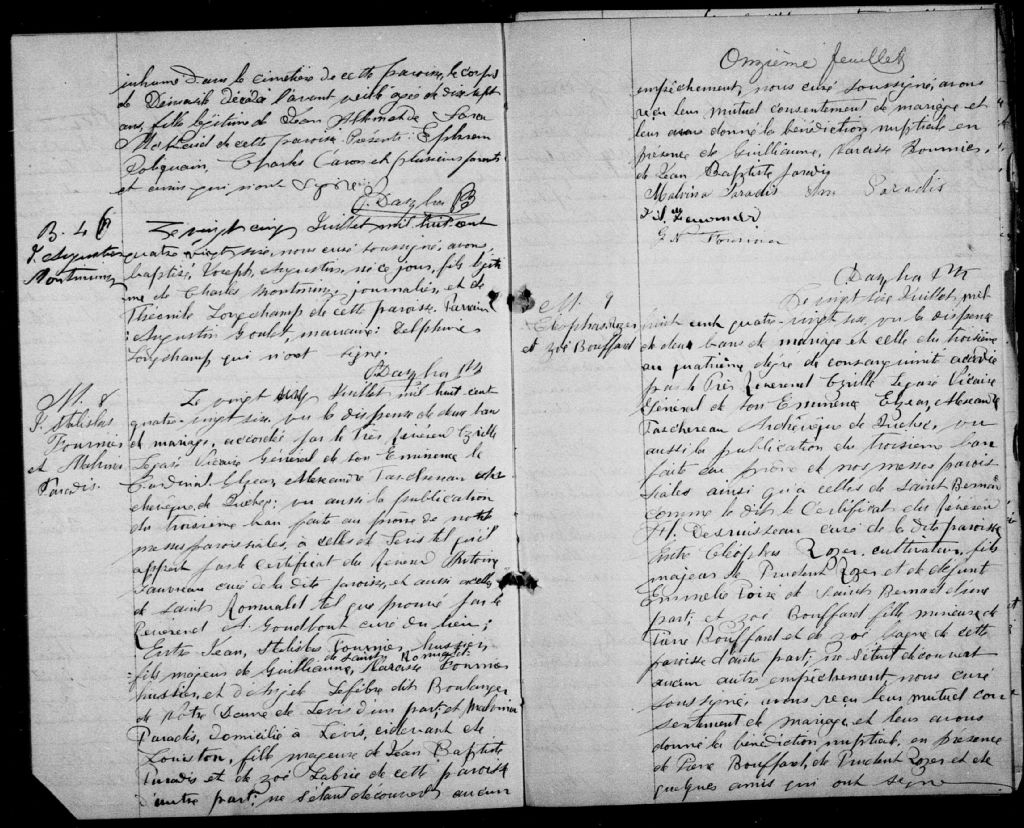 inhumé dans le cimetière de cette paroisse, le corps
de décédé l'avant veille agée de dix sept
ans, fille légitime de Jean de Sara
de cette paroisse. Présents: Ephrem
Charles Caron et plusieurs parents
et amis qui n'ont signé.
B. 46
J. Augustin
Montminy
Le vingt cinq Juillet mil huit cent
quatre vingt six, nous curé soussigné, avons
baptisé, Joseph, Augustin, né ce jour, fils légiti
me de Charles Montminy, journalier, et de
Théonile Longchamp de cette paroisse. Parrain
: Augustin Goulet, marraine: Delphine
Longchamp qui n'ont signé.
M. 8
J. Stalislas
Fournier
et Malvina
Paradis.
Le vingt Juillet mil huit cent
quatre-vingt six vu la dispense de deux bans
de mariage, accordée par le Très révérend Cyrille
Legaré Vicaire Général de son Eminence le
Cardinal Elzear Alexandre Taschereau arche
chevêque de Québec; vu aussi la publication
du troisième ban faite au prône de notre
messe paroissiale, à celle de Levis tel qu'il
appert par le certificat du Révérend Antoine
Gauvreau curé de la dite paroisse, et aussi à celle
de Saint Romuald tel que prouvé par le
Révérend A. Goudbout curé du lieu;
Entre Jean, Stalislas Fournier huissier,
de Saint Romuald
fils majeur de Guillaume, Narcisse Fournier
huissier, et de Lefebre dit Boulanger
de Notre Dame de Levis d'un part; et Malvina
Paradis, domicilié à Lévis, cidevant de
fille majeure de Jean Baptiste
Paradis et de zoé Labrie de cette paroisse
d'autre part; ne s'étant découvert aucun
Onzième feuillet
empêchement, nous curé soussigné, avons
reçu leur mutuel consentement de mariage et
leur avons donné la bénédiction nuptiale en
présence de Guillaume, Narcisse Fournier,
de Jean Baptiste Paradis
Malvina Paradis Paradis
Fournier
M. 9
Cléophas Rozer
et zoé Bouffard
Le vingt six Juillet, mil
huit cent quatre-vingt six, vu la dispense
de deux bans de mariage et celle du troisième
au quatrième dégré de consanguinité accordée
par le Très Révérend Cyrille Legaré Vicaire
Général de son Eminence Elzear, Alexandre
Taschereau Archévêque de Québec, vu
aussi la publication du troisième ban
faite au prône de nos messes parois
siales ainsi qu'à celles de Saint Bernard
comme le dit le Certificat du Révérend
H. Desruisseau curé de la dite paroisse
Entre Cléophas Rozer, cultivateur, fils
majeur de Prudent Rozer et de défunt
Emmelie de Saint Bernard d'une
part; et zoé Bouffard fille mineure de
Pierre Bouffard et de zoé de cette
paroisse d'autre part; ne s'étant découvert
aucun autre empêchement, nous curé
soussigné, avons reçu leur mutuel con
sentement de mariage, et leur avons
donné la bénédiction nuptiale, en présence
de Pierre Bouffard, de Prudent Rozer et de
quelques amis qui ont signé